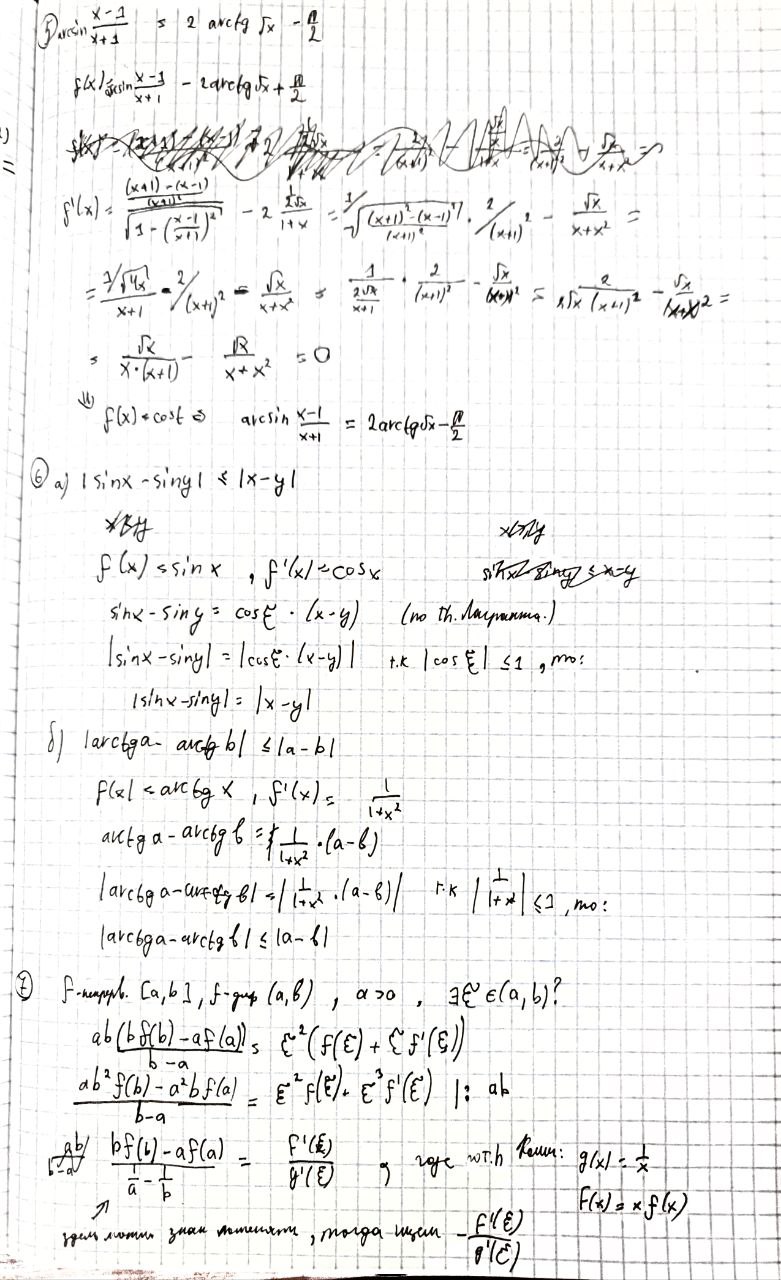 5) arcsin (x-1)/(x+1) = 2 arctg √x - π/2
f(x) = arcsin (x-1)/(x+1) - 2arctg√x + π/2
f'(x) = ((x+1)-(x-1))/(x+1)² / √(1 - ((x-1)/(x+1))²) - 2 (1/(2√x))/(1+x) = 1/√(((x+1)²-(x-1)²)/(x+1)²) · 2/(x+1)² - √x/(x+x²) =
= 1/(√4x/(x+1)) · 2/(x+1)² - √x/(x+x²) = 1/(2√x/(x+1)) · 2/(x+1)² - √x/(x+x²) = 2/(2√x (x+1)²) - √x/(x+x²) =
= √x/(x·(x+1)) - √x/(x+x²) = 0
⇓
f(x) = cost ⇒ arcsin (x-1)/(x+1) = 2arctg√x - π/2
6) a) |sinx - siny| ≤ |x-y|
f(x) = sinx , f'(x) = cosx
sinx - siny = cosξ · (x-y) (по th. Лагранжа.)
|sinx-siny| = |cosξ · (x-y)| т.к |cos ξ| ≤ 1 , то:
|sinx-siny| = |x-y|
б) |arctga - arctg b| ≤ |a-b|
f(x) = arctg x , f'(x) = 1/(1+x²)
arctg a - arctg b = 1/(1+x²) · (a-b)
|arctg a - arctg b| = |1/(1+x²) · (a-b)| т.к |1/(1+x²)| ≤ 1 , то:
|arctga-arctg b| ≤ |a-b|
7) f-непрерв. [a,b] , f-диф (a,b) , a>0 , ∃ξ ∈(a,b)?
ab(bf(b) - af(a))/(b-a) = ξ²(f(ξ) + ξf'(ξ))
(ab²f(b) - a²bf(a))/(b-a) = ξ²f(ξ) + ξ³f'(ξ) |: ab
(bf(b) - af(a))/(1/a - 1/b) = F'(ξ)/g'(ξ) , где по т.h Коши: g(x) = 1/x
F(x) = x f(x)
здесь можно знак поменять, тогда ищем -F'(ξ)/g'(ξ)